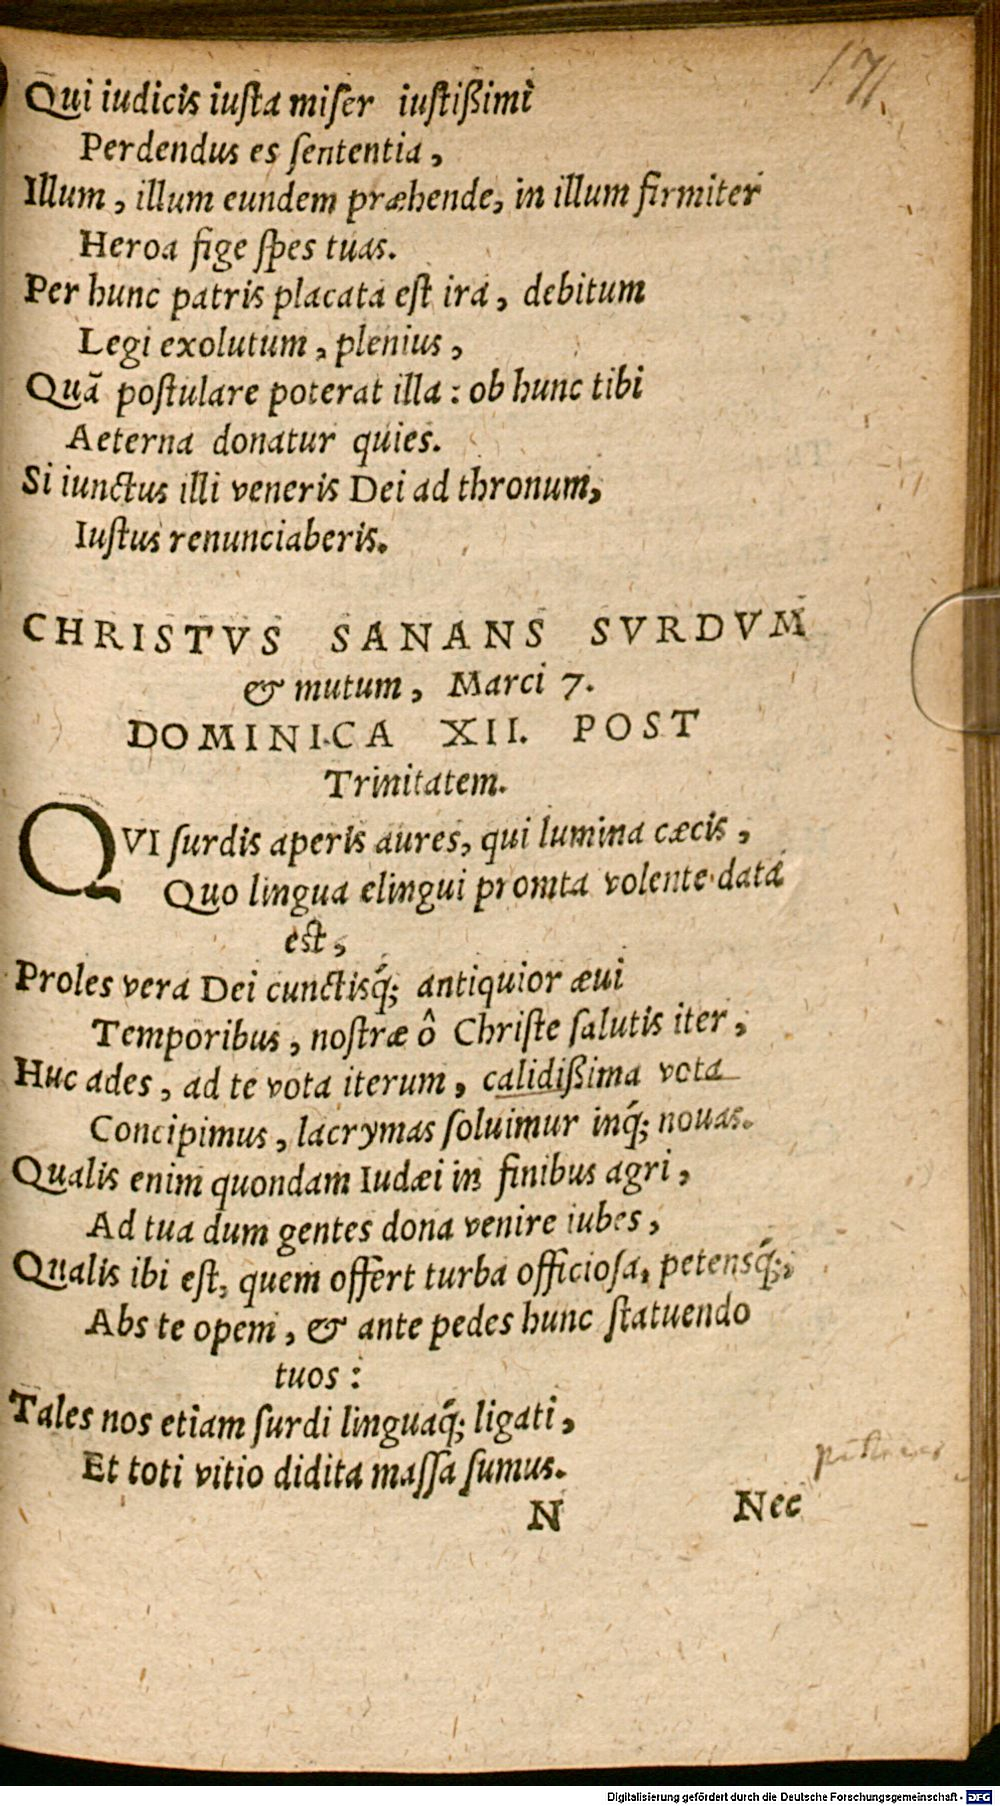 171
Qui iudicis iusta miser iustißimi
Perdendus es sententia,
Illum, illum eundem præhende, in illum firmiter
Heroa fige spes tuas.
Per hunc patris placata est ira, debitum
Legi exolutum, plenius,
Quā postulare poterat illa: ob hunc tibi
Aeterna donatur quies.
Si iunctus illi veneris Dei ad thronum,
Iustus renunciaberis.
CHRISTVS SANANS SVRDVM
& mutum, Marci 7.
DOMINICA XII. POST
Trinitatem.
QVI surdis aperis aures, qui lumina cæcis,
Quo lingua elingui promta volente data
est,
Proles vera Dei cunctisq́; antiquior æui
Temporibus, nostræ ô Christe salutis iter,
Huc ades, ad te vota iterum, calidißima vota
Concipimus, lacrymas soluimur inq́; nouas.
Qualis enim quondam Iudæi in finibus agri,
Ad tua dum gentes dona venire iubes,
Qualis ibi est, quem offert turba officiosa, petensq́;,
Abs te opem, & ante pedes hunc statuendo
tuos:
Tales nos etiam surdi linguaq́; ligati,
Et toti vitio didita massa sumus.
N Nec
Digitalisierung gefördert durch die Deutsche Forschungsgemeinschaft - DFG